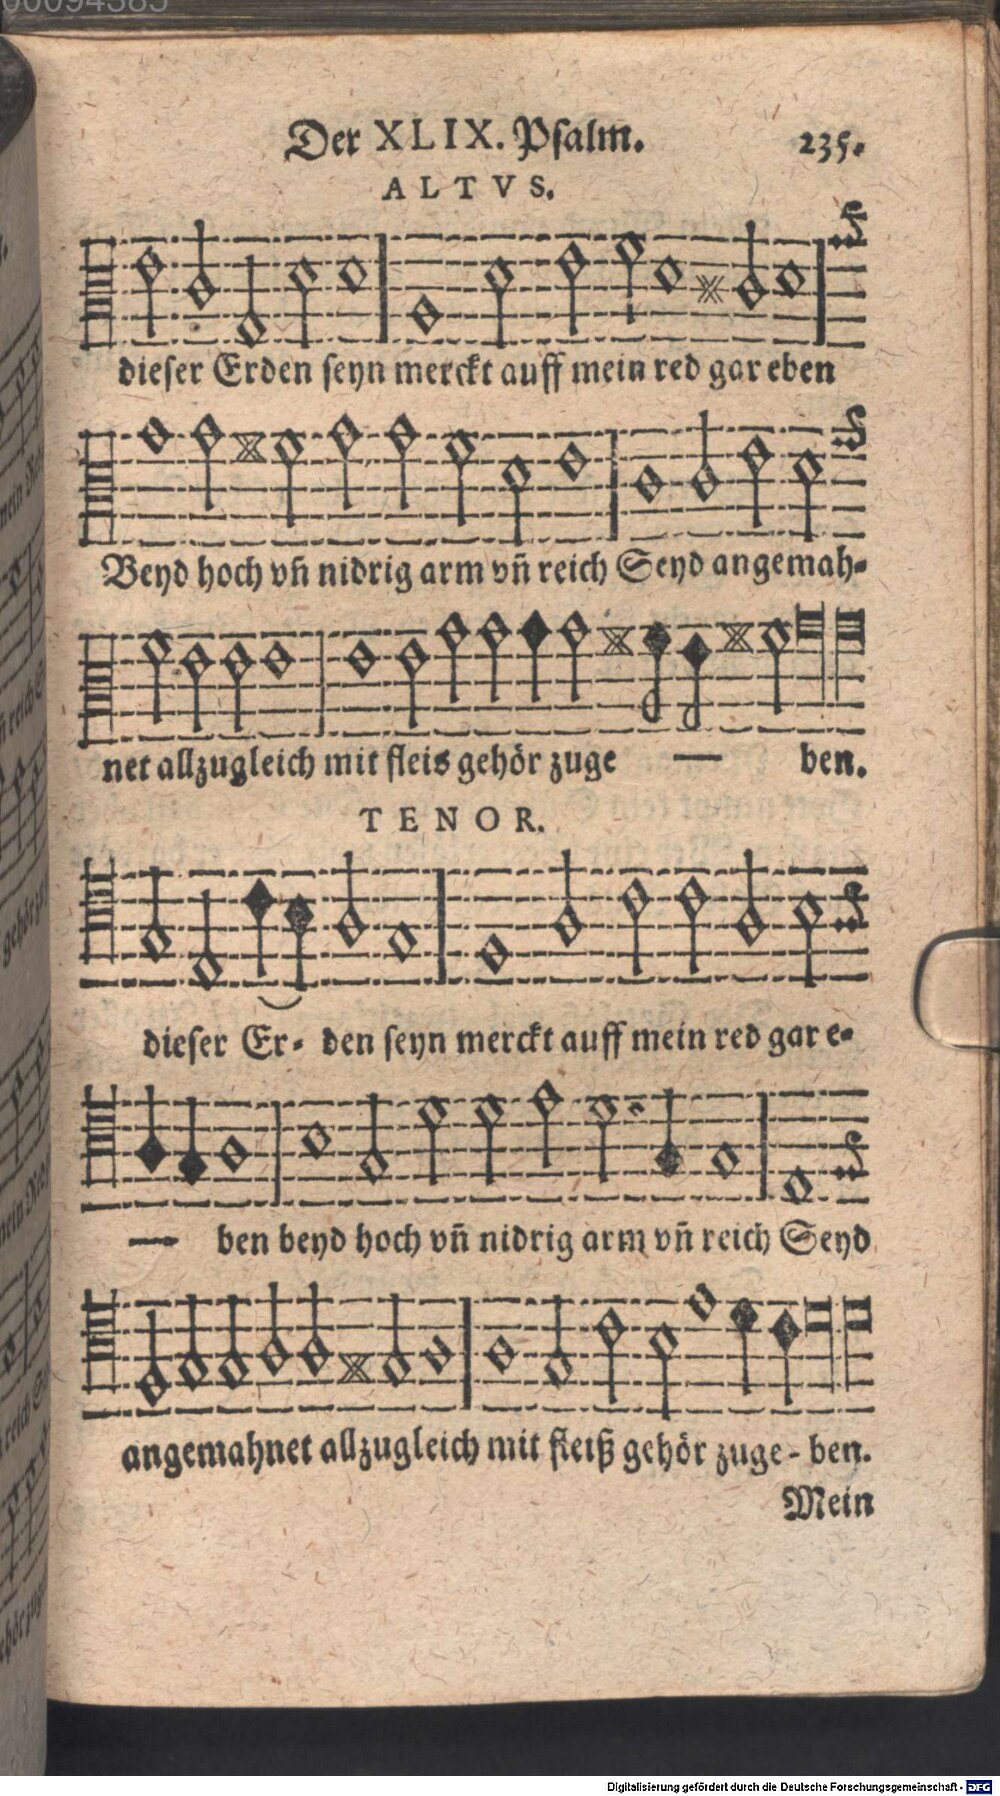 00094385
Der XLIX. Psalm. 235.
ALTVS.
dieser Erden seyn merckt auff mein red gar eben
Beyd hoch vñ nidrig arm vñ reich Seyd angemah-
net allzugleich mit fleis gehör zuge — ben.
TENOR.
dieser Er- den seyn merckt auff mein red gar e-
— ben beyd hoch vñ nidrig arm vñ reich Seyd
angemahnet allzugleich mit fleiß gehör zuge - ben.
Mein
Digitalisierung gefördert durch die Deutsche Forschungsgemeinschaft - DFG